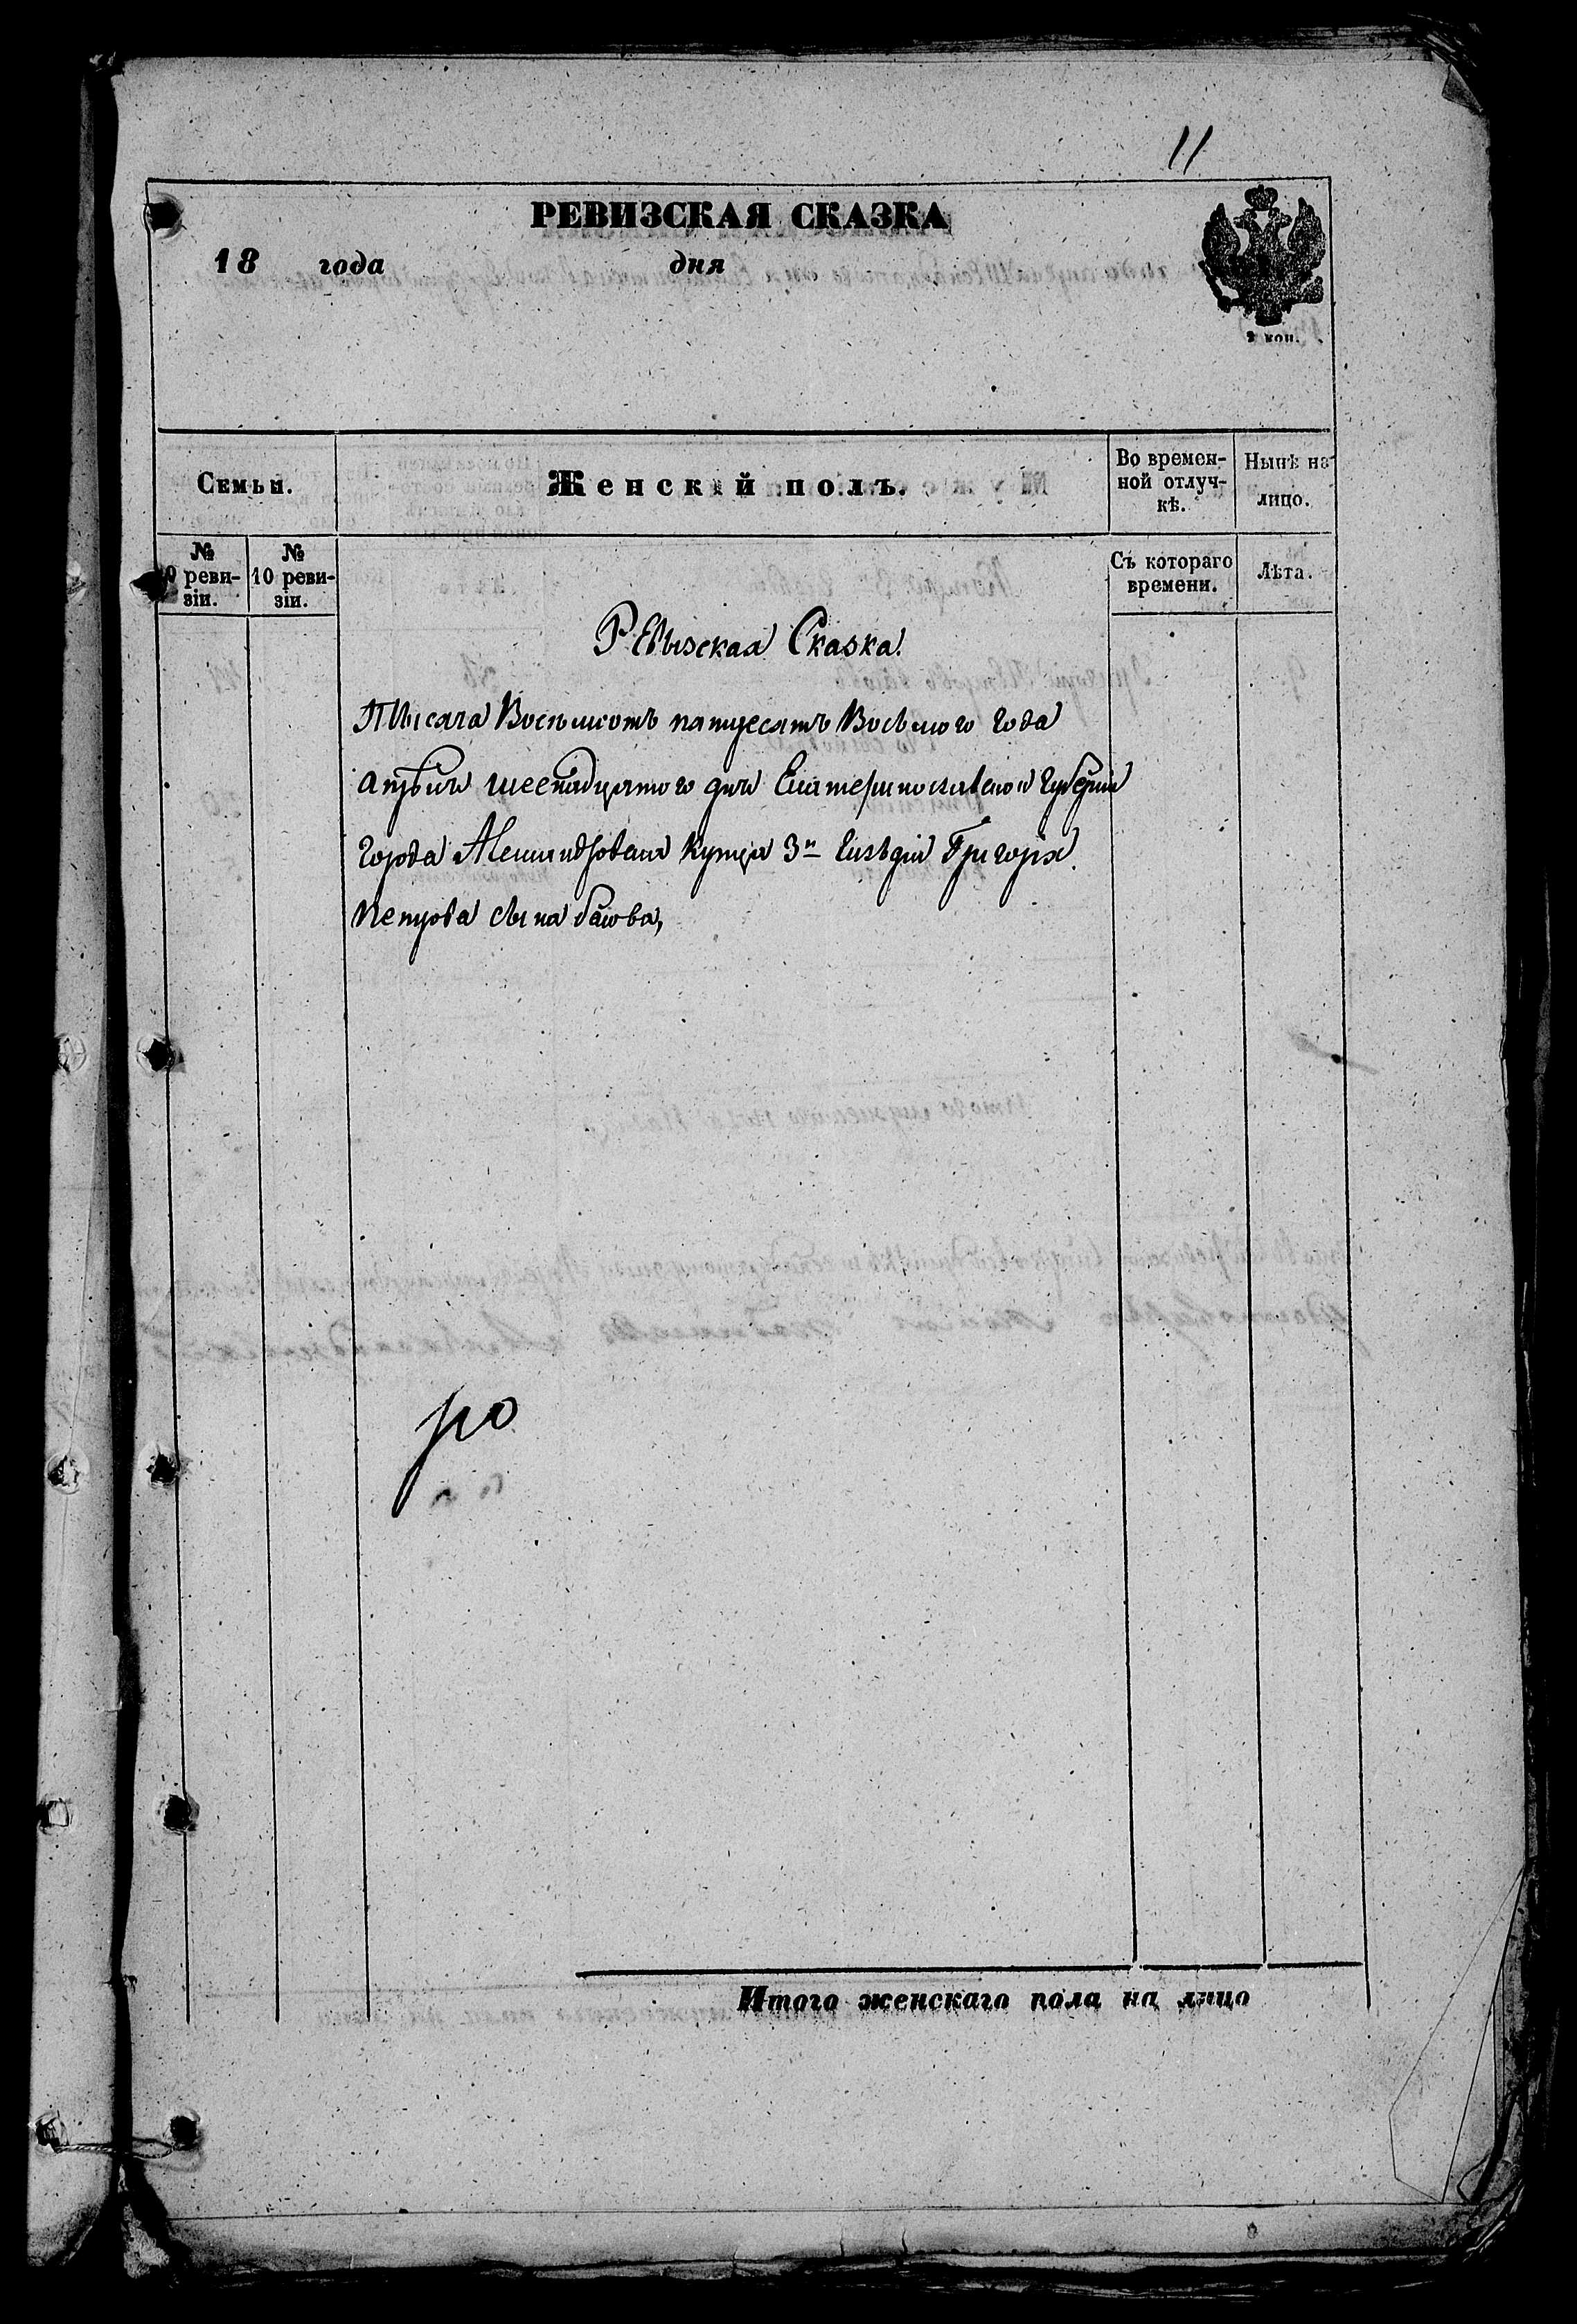 11
РЕВИЗСКАЯ СКАЗКА
18 года дня
2 коп.
Семьи.
Женскій полъ.
Во времен-
ной отлуч-
кѣ.
Нынѣ на
лицо.
№
9 реви-
зіи.
№
10 реви-
зіи.
Съ котораго
времени.
Лѣта.
Ревызская Сказка.
Тысяча Восемсотъ пятдесятъ Восьмого года
апреля шеснадцатого дня Екатеринославской Губерніи
города Александровска Купца 3й Гилдіи Григорія
Петрова сына
ро
Итого женскаго пола на лицо